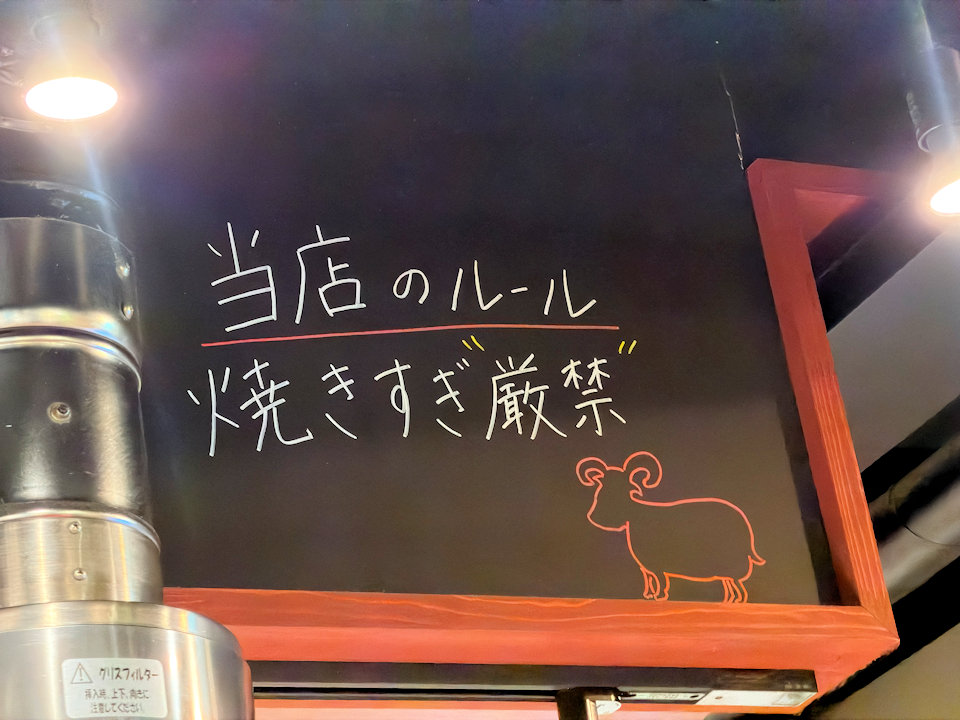 当店のルール
焼きすぎ"厳禁"
グリスフィルター
挿入時、上下、向きに
注意してください。